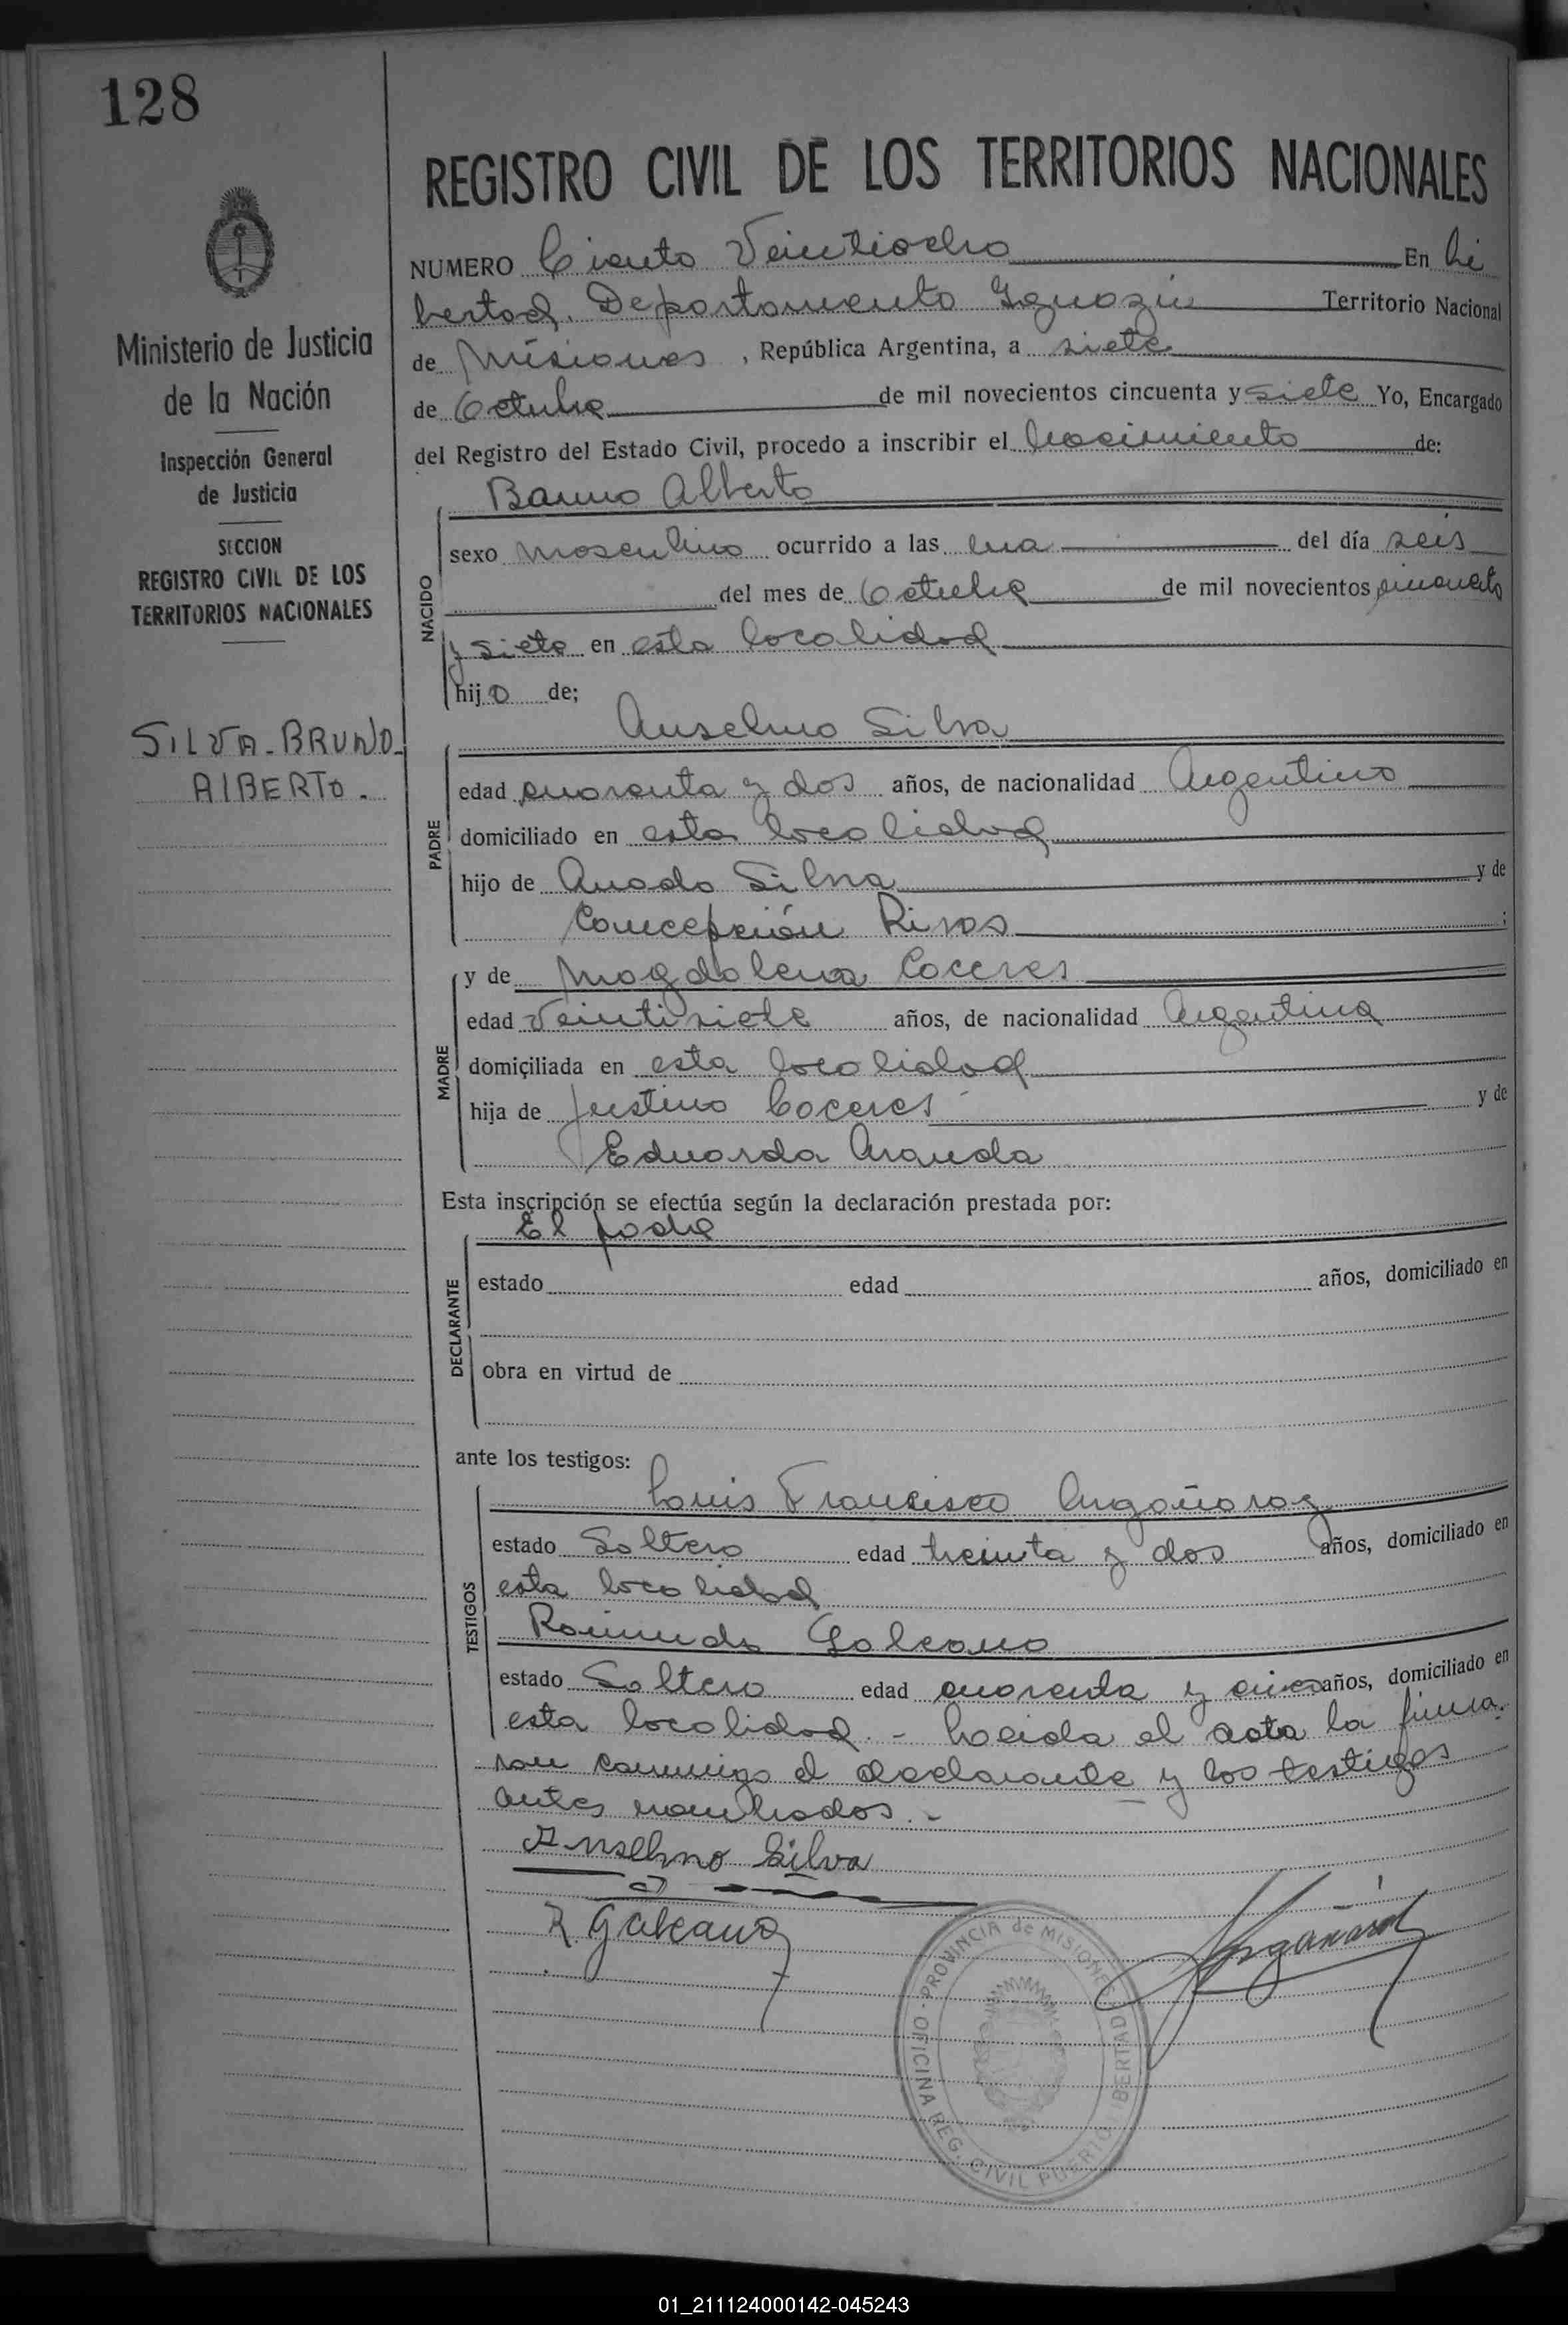 128
REGISTRO CIVIL DE LOS TERRITORIOS NACIONALES
Ministerio de Justicia
de la Nación
Inspección General
de Justicia
SECCION
REGISTRO CIVIL DE LOS
TERRITORIOS NACIONALES
SILVA-BRUNO-
AlBERTO.
NUMERO Ciento Veintiocho En Li
bertad. Departamento Iguazú Territorio Nacional
de Misiones, República Argentina, a siete
de Octubre de mil novecientos cincuenta y siete Yo, Encargado
del Registro del Estado Civil, procedo a inscribir el Nacimiento de:
Bruno Alberto
NACIDO
sexo masculino ocurrido a las una del día seis
del mes de Octubre de mil novecientos cincuenta
y siete en esta localidad
hijo de;
Anselmo Silva
PADRE
edad cuarenta y dos años, de nacionalidad Argentino
domiciliado en esta localidad
hijo de Amado Silva y de
Concepción Rivas ;
y de Magdalena Coceres
MADRE
edad Veintisiete años, de nacionalidad Argentina
domiciliada en esta localidad
hija de Justino Coceres y de
Eduarda Aranda
Esta inscripción se efectúa según la declaración prestada por:
El padre
DECLARANTE
estado edad años, domiciliado en
obra en virtud de
ante los testigos:
Luis Francisco Argañaraz
TESTIGOS
estado Soltero edad treinta y dos años, domiciliado en
esta localidad
Raimundo Galeano
estado Soltero edad cuarenta y cinco años, domiciliado en
esta localidad. - Leida el acta la firma
ron conmigo el declarante y los testigos
antes nombrados.-
Anselmo Silva
R. Galeano
Argañaraz
PROVINCIA de MISIONES
OFICINA REG. CIVIL PUERTO LIBERTAD
01_211124000142-045243